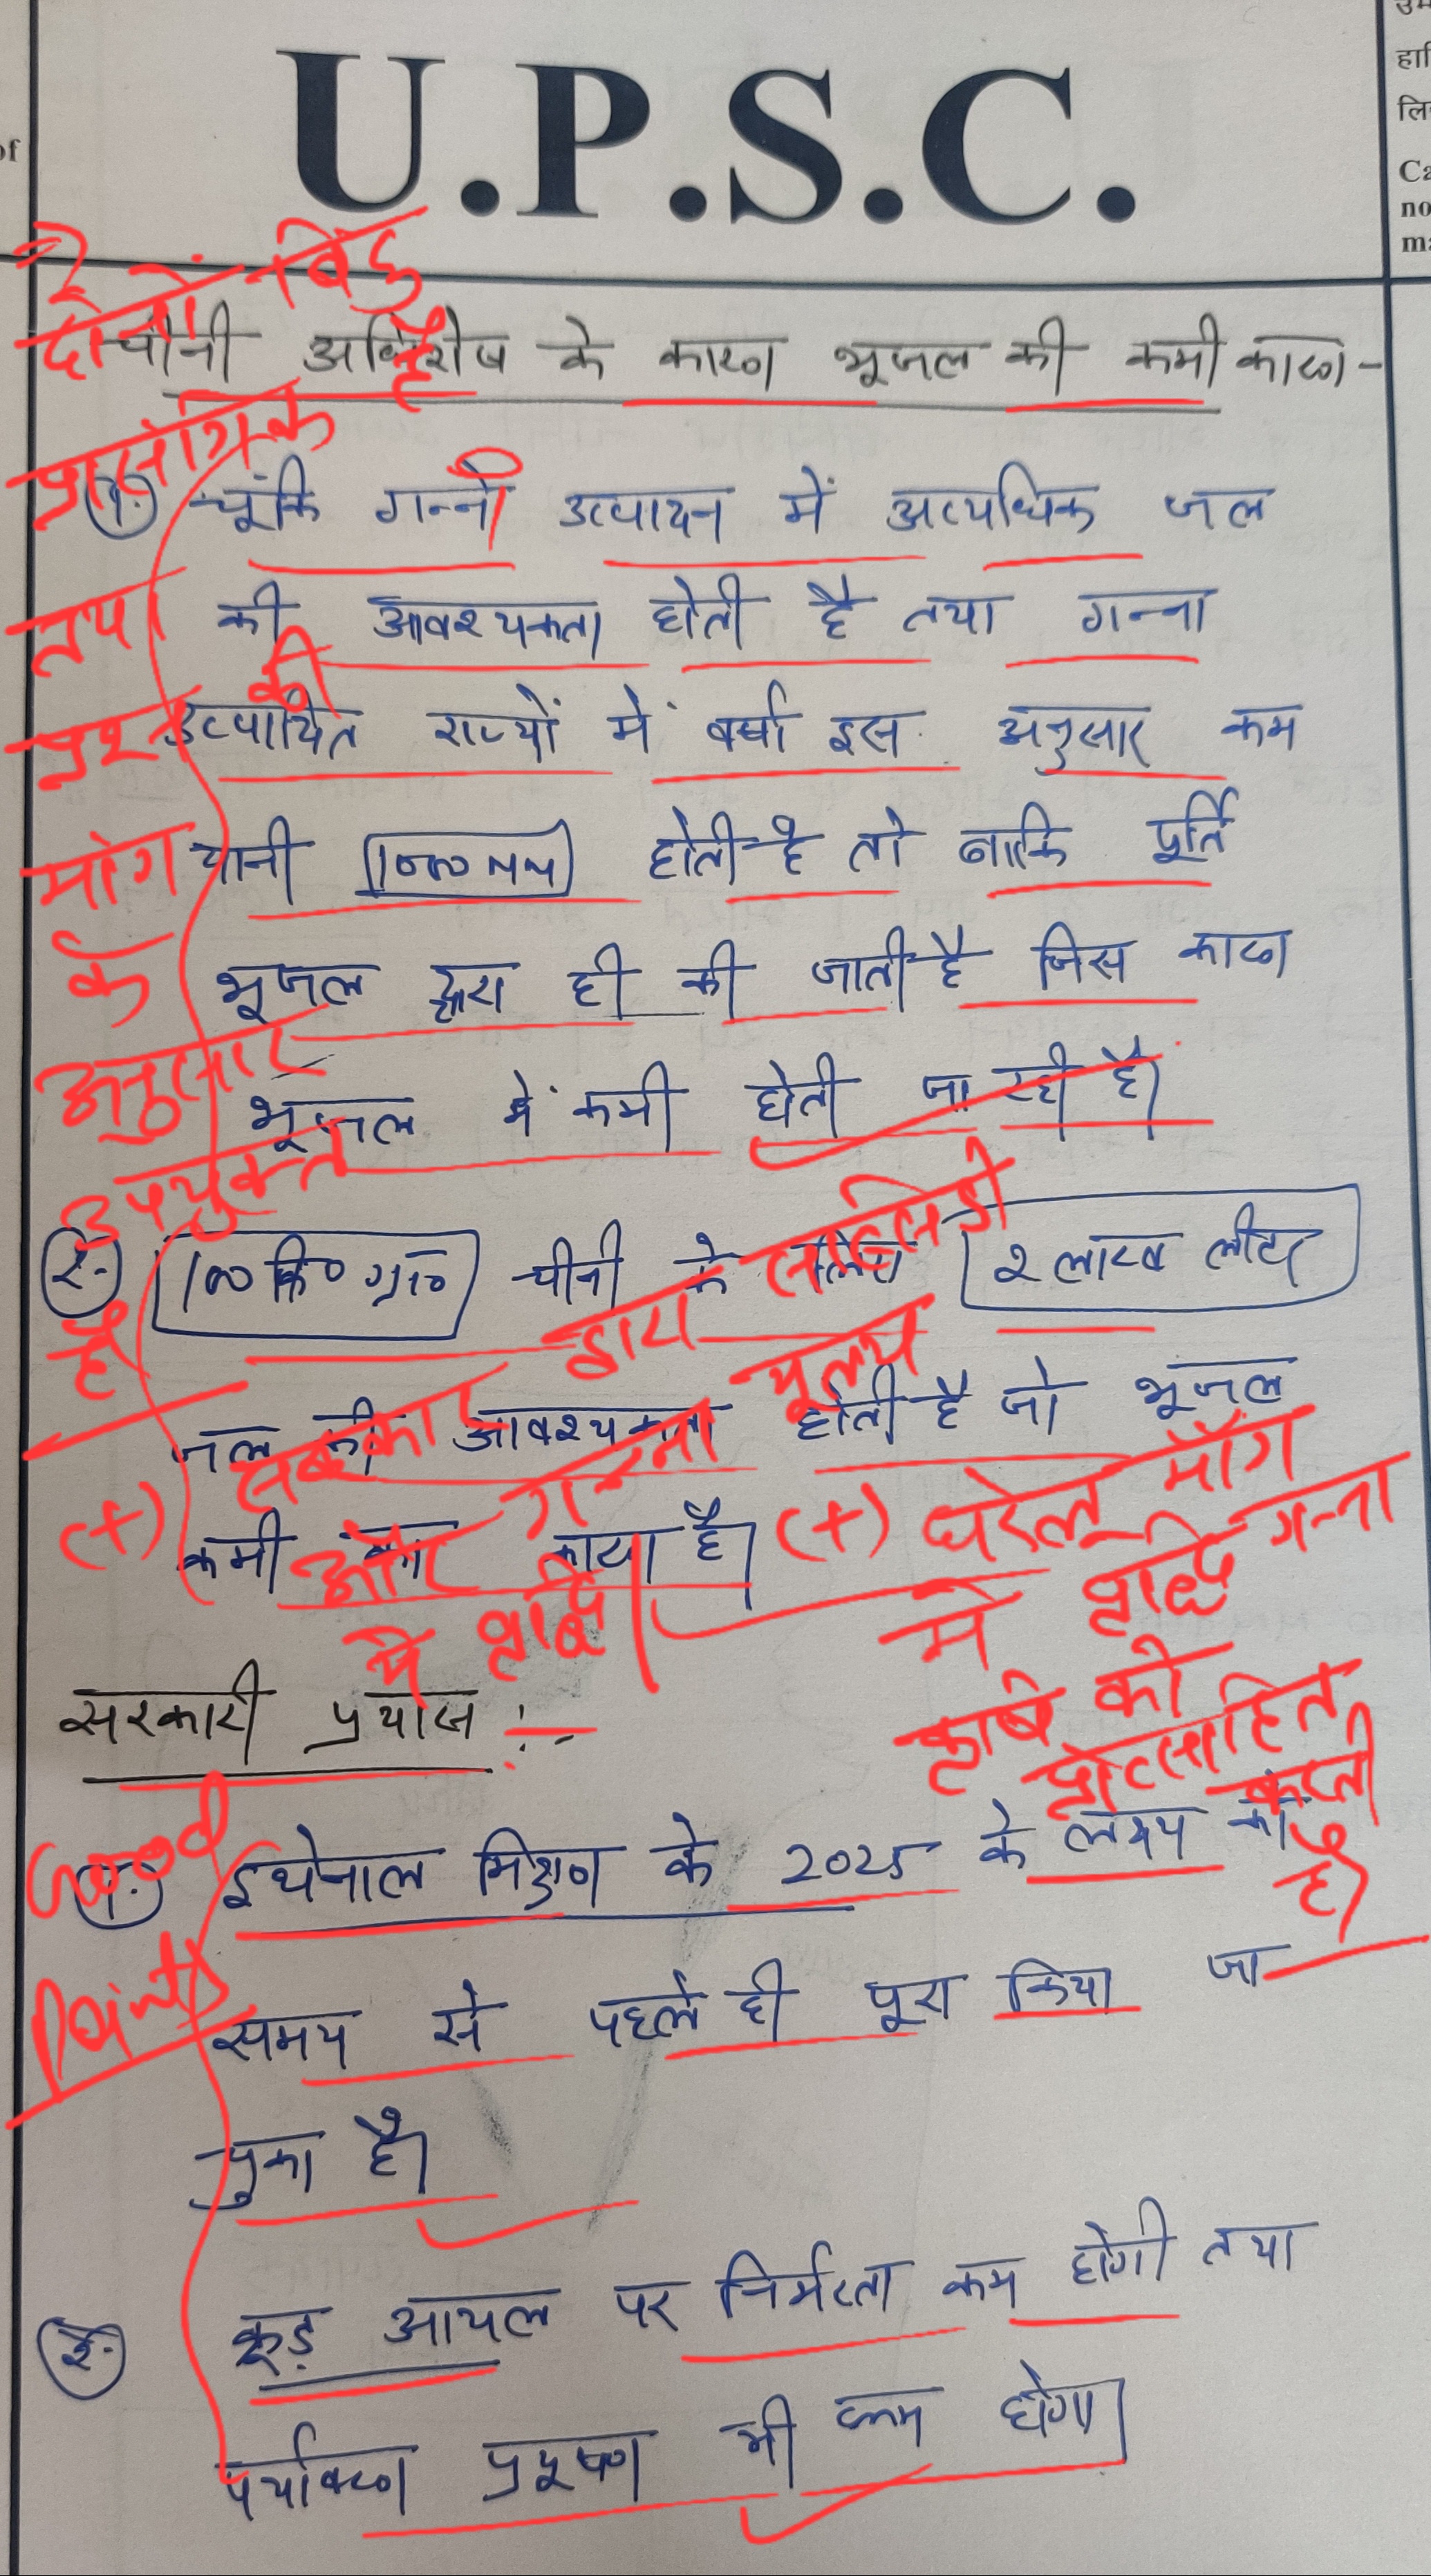 of
U.P.S.C.
उम
हा
लि
Ca
no
ma
चीनी अधिशेष के कारण भूजल की कमी कारण-
1. चूंकि गन्ने उत्पादन में अत्यधिक जल
की आवश्यकता होती है तथा गन्ना
उत्पादित राज्यों में वर्षा इस अनुसार कम
यानी होती है तो बाकि पूर्ति
भूजल द्वारा ही की जाती है जिस कारण
भूजल में कमी होती जा रही है।
2. 100 कि० ग्रा० चीनी के लिए 2 लाख लीटर
जल की आवश्यकता होती है जो भूजल
कमी का कारण है।
सरकारी प्रयास :-
1. इथेनाल मिश्रण के 2025 के लक्ष्य को
समय से पहले ही पूरा किया जा
चुका है।
2. क्रूड़ आयल पर निर्भरता कम होगी तथा
पर्यावरण प्रदूषण भी कम होगा।
2
दोनों बिंदु
प्रासंगिक हैं
तथा
प्रश्न की
मांग
के
अनुसार
उपयुक्त
है।
(+) सरकार द्वारा सब्सिडी
और गन्ना मूल्य
में वृद्धि।
(+) घरेलू माँग
में वृद्धि गन्ना
कृषि को
प्रोत्साहित
करती
है।
Good
Points